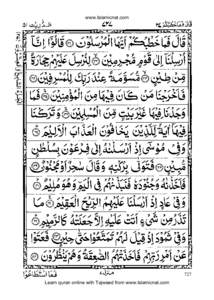 www.islamicnet.com
٧٢٧
قَالَ فَمَا خَطْبُكُمْ اَيُّهَا الْمُرْسَلُوْنَ قَالُوْٓا اِنَّآ
اُرْسِلْنَآ اِلٰى قَوْمٍ مُّجْرِمِيْنَ لِنُرْسِلَ عَلَيْهِمْ حِجَارَةً
مِّنْ طِيْنٍ مُّسَوَّمَةً عِنْدَ رَبِّكَ لِلْمُسْرِفِيْنَ
فَاَخْرَجْنَا مَنْ كَانَ فِيْهَا مِنَ الْمُؤْمِنِيْنَ فَمَا
وَجَدْنَا فِيْهَا غَيْرَ بَيْتٍ مِّنَ الْمُسْلِمِيْنَ وَتَرَكْنَا
فِيْهَآ اٰيَةً لِّلَّذِيْنَ يَخَافُوْنَ الْعَذَابَ الْاَلِيْمَ
وَفِيْ مُوْسٰٓى اِذْ اَرْسَلْنٰهُ اِلٰى فِرْعَوْنَ بِسُلْطٰنٍ
مُّبِيْنٍ فَتَوَلّٰى بِرُكْنِهٖ وَقَالَ سٰحِرٌ اَوْ مَجْنُوْنٌ
فَاَخَذْنٰهُ وَجُنُوْدَهٗ فَنَبَذْنٰهُمْ فِى الْيَمِّ وَهُوَ مُلِيْمٌ
وَفِيْ عَادٍ اِذْ اَرْسَلْنَا عَلَيْهِمُ الرِّيْحَ الْعَقِيْمَ مَا
تَذَرُ مِنْ شَيْءٍ اَتَتْ عَلَيْهِ اِلَّا جَعَلَتْهُ كَالرَّمِيْمِ
وَفِيْ ثَمُوْدَ اِذْ قِيْلَ لَهُمْ تَمَتَّعُوْا حَتّٰى حِيْنٍ فَعَتَوْا
عَنْ اَمْرِ رَبِّهِمْ فَاَخَذَتْهُمُ الصّٰعِقَةُ وَهُمْ يَنْظُرُوْنَ
فَمَا اسْتَطَاعُوْا
727
Learn quran online with Tajweed from www.islamicnet.com